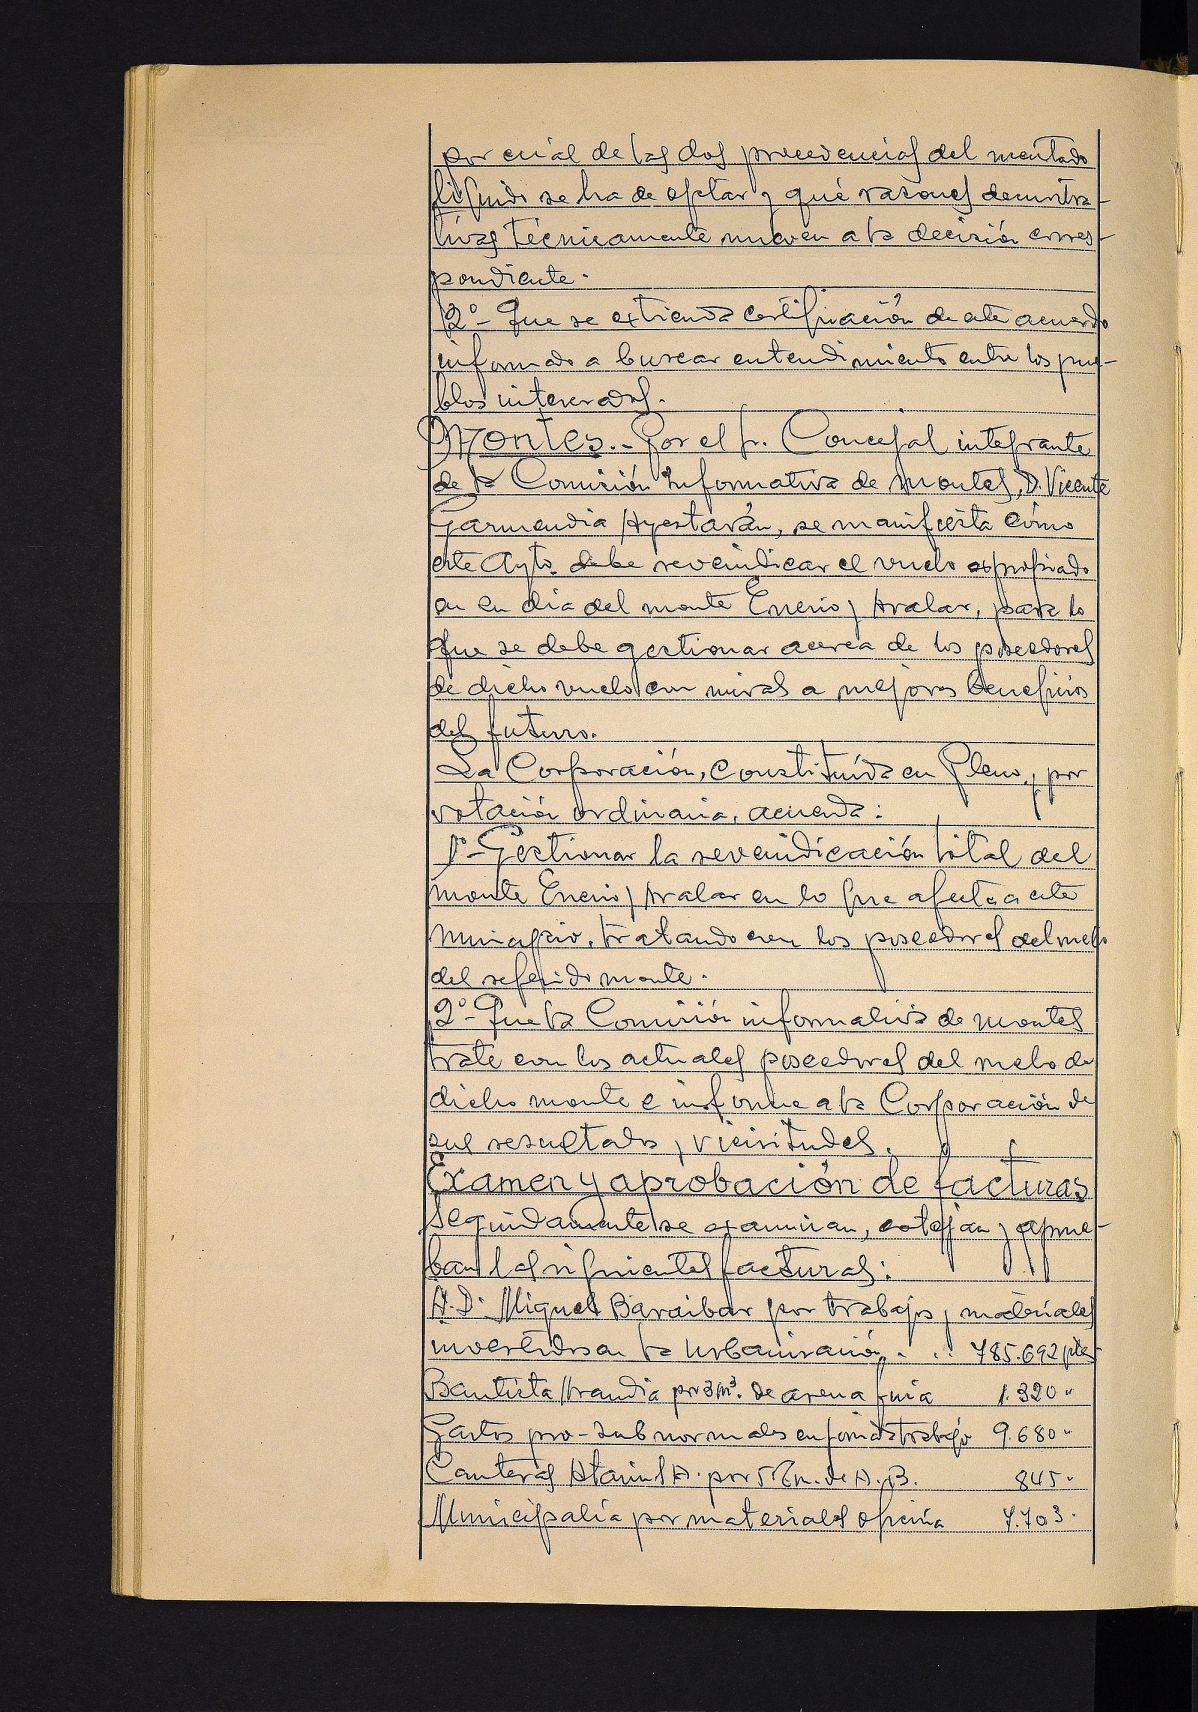 por cuál de las dos procedencias del mentado
líquido se ha de optar y qué razones demostra-
tivas técnicamente mueven a la decisión corres-
pondiente.
2º- Que se extienda certificación de este acuerdo
informado a buscar entendimiento entre los pue-
blos interesados.
Montes.- Por el Sr. Concejal integrante
de la Comisión Informativa de montes, D. Vicente
Garmendia Ayestarán, se manifiesta cómo
este Ayto. debe reveindicar el vuelo expropiado
en su día del monte Enerio y Aralar, para lo
que se debe gestionar acerca de los poseedores
de dicho vuelo con miras a mejores beneficios
del futuro.
La Corporación, constituída en Pleno, y por
votación ordinaria, acuerda:
1º- Gestionar la reveindicación total del
monte Enerio y Aralar en lo que afecta a este
municipio, tratando con los poseedores del vuelo
del referido monte.
2º- Que la Comisión informativa de montes
trate con los actuales poseedores del vuelo de
dicho monte e informe a la Corporación de
sus resultados y vicisitudes.
Examen y aprobación de facturas
Seguidamente se examinan, cotejan y aprue-
ban las siguientes facturas:
A D. Miguel Baraibar por trabajos y materiales
invertidos en la urbanización. . .. 785.692 ptas
Bautista Irandia por 3 m³. de arena fina 1.320 "
Gastos pro-subnormales en fonda trabajo 9.680 "
Canteras Atain S.A. por 5 Tn. de A. B. 845.
Municipalia por materiales oficina 7.703.